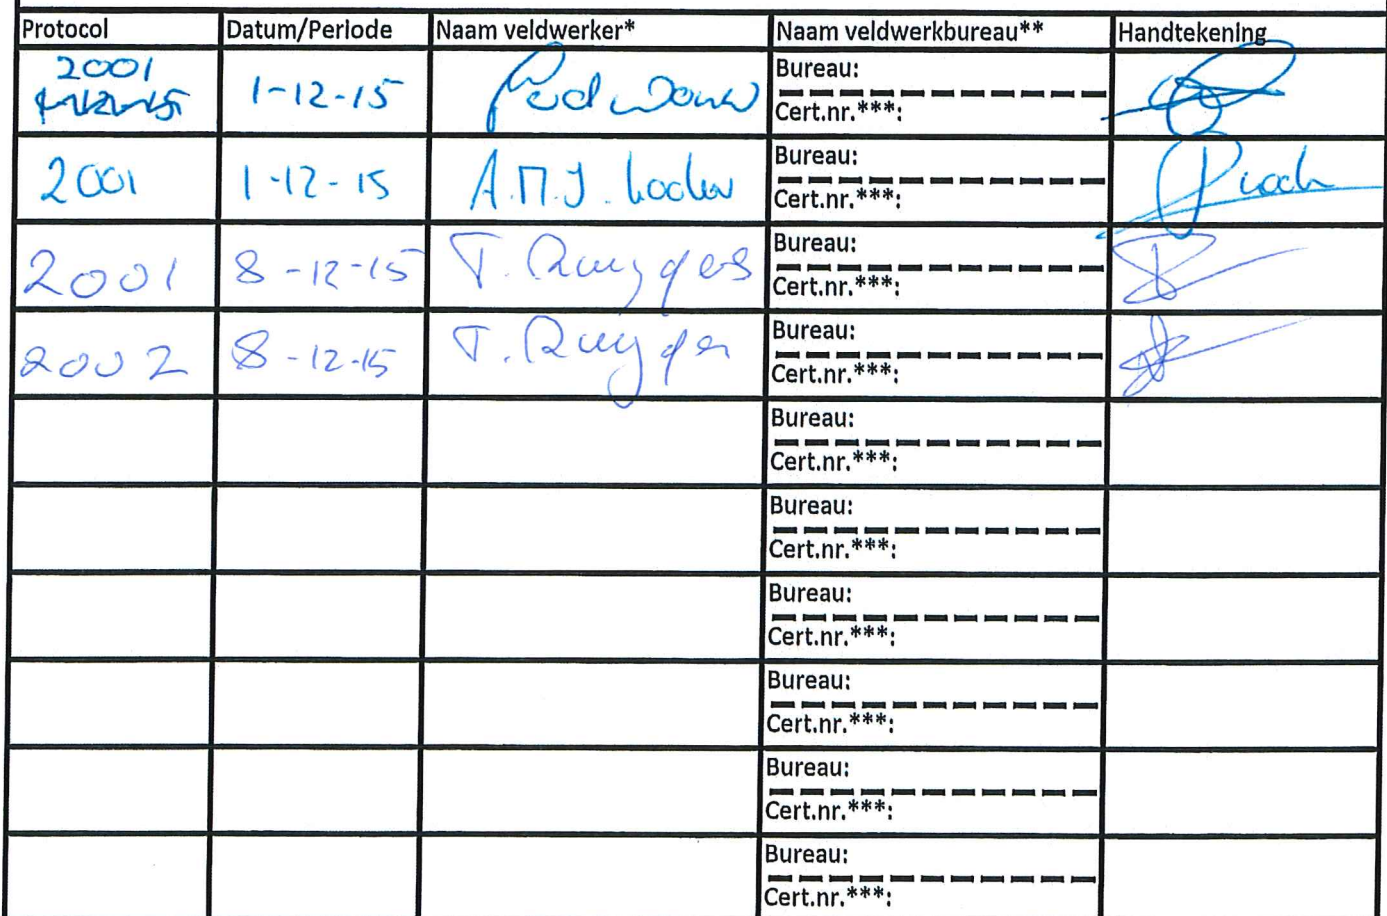 Protocol Datum/Periode Naam veldwerker* Naam veldwerkbureau** Handtekening
2001 1-12-15 Bureau:
1-12-15 Cert.nr.***:
2001 1-12-15 A.M.J. Bureau:
Cert.nr.***:
2001 8-12-15 T. Bureau:
Cert.nr.***:
2002 8-12-15 T. Bureau:
Cert.nr.***:
Bureau:
Cert.nr.***:
Bureau:
Cert.nr.***:
Bureau:
Cert.nr.***:
Bureau:
Cert.nr.***:
Bureau:
Cert.nr.***:
Bureau:
Cert.nr.***: